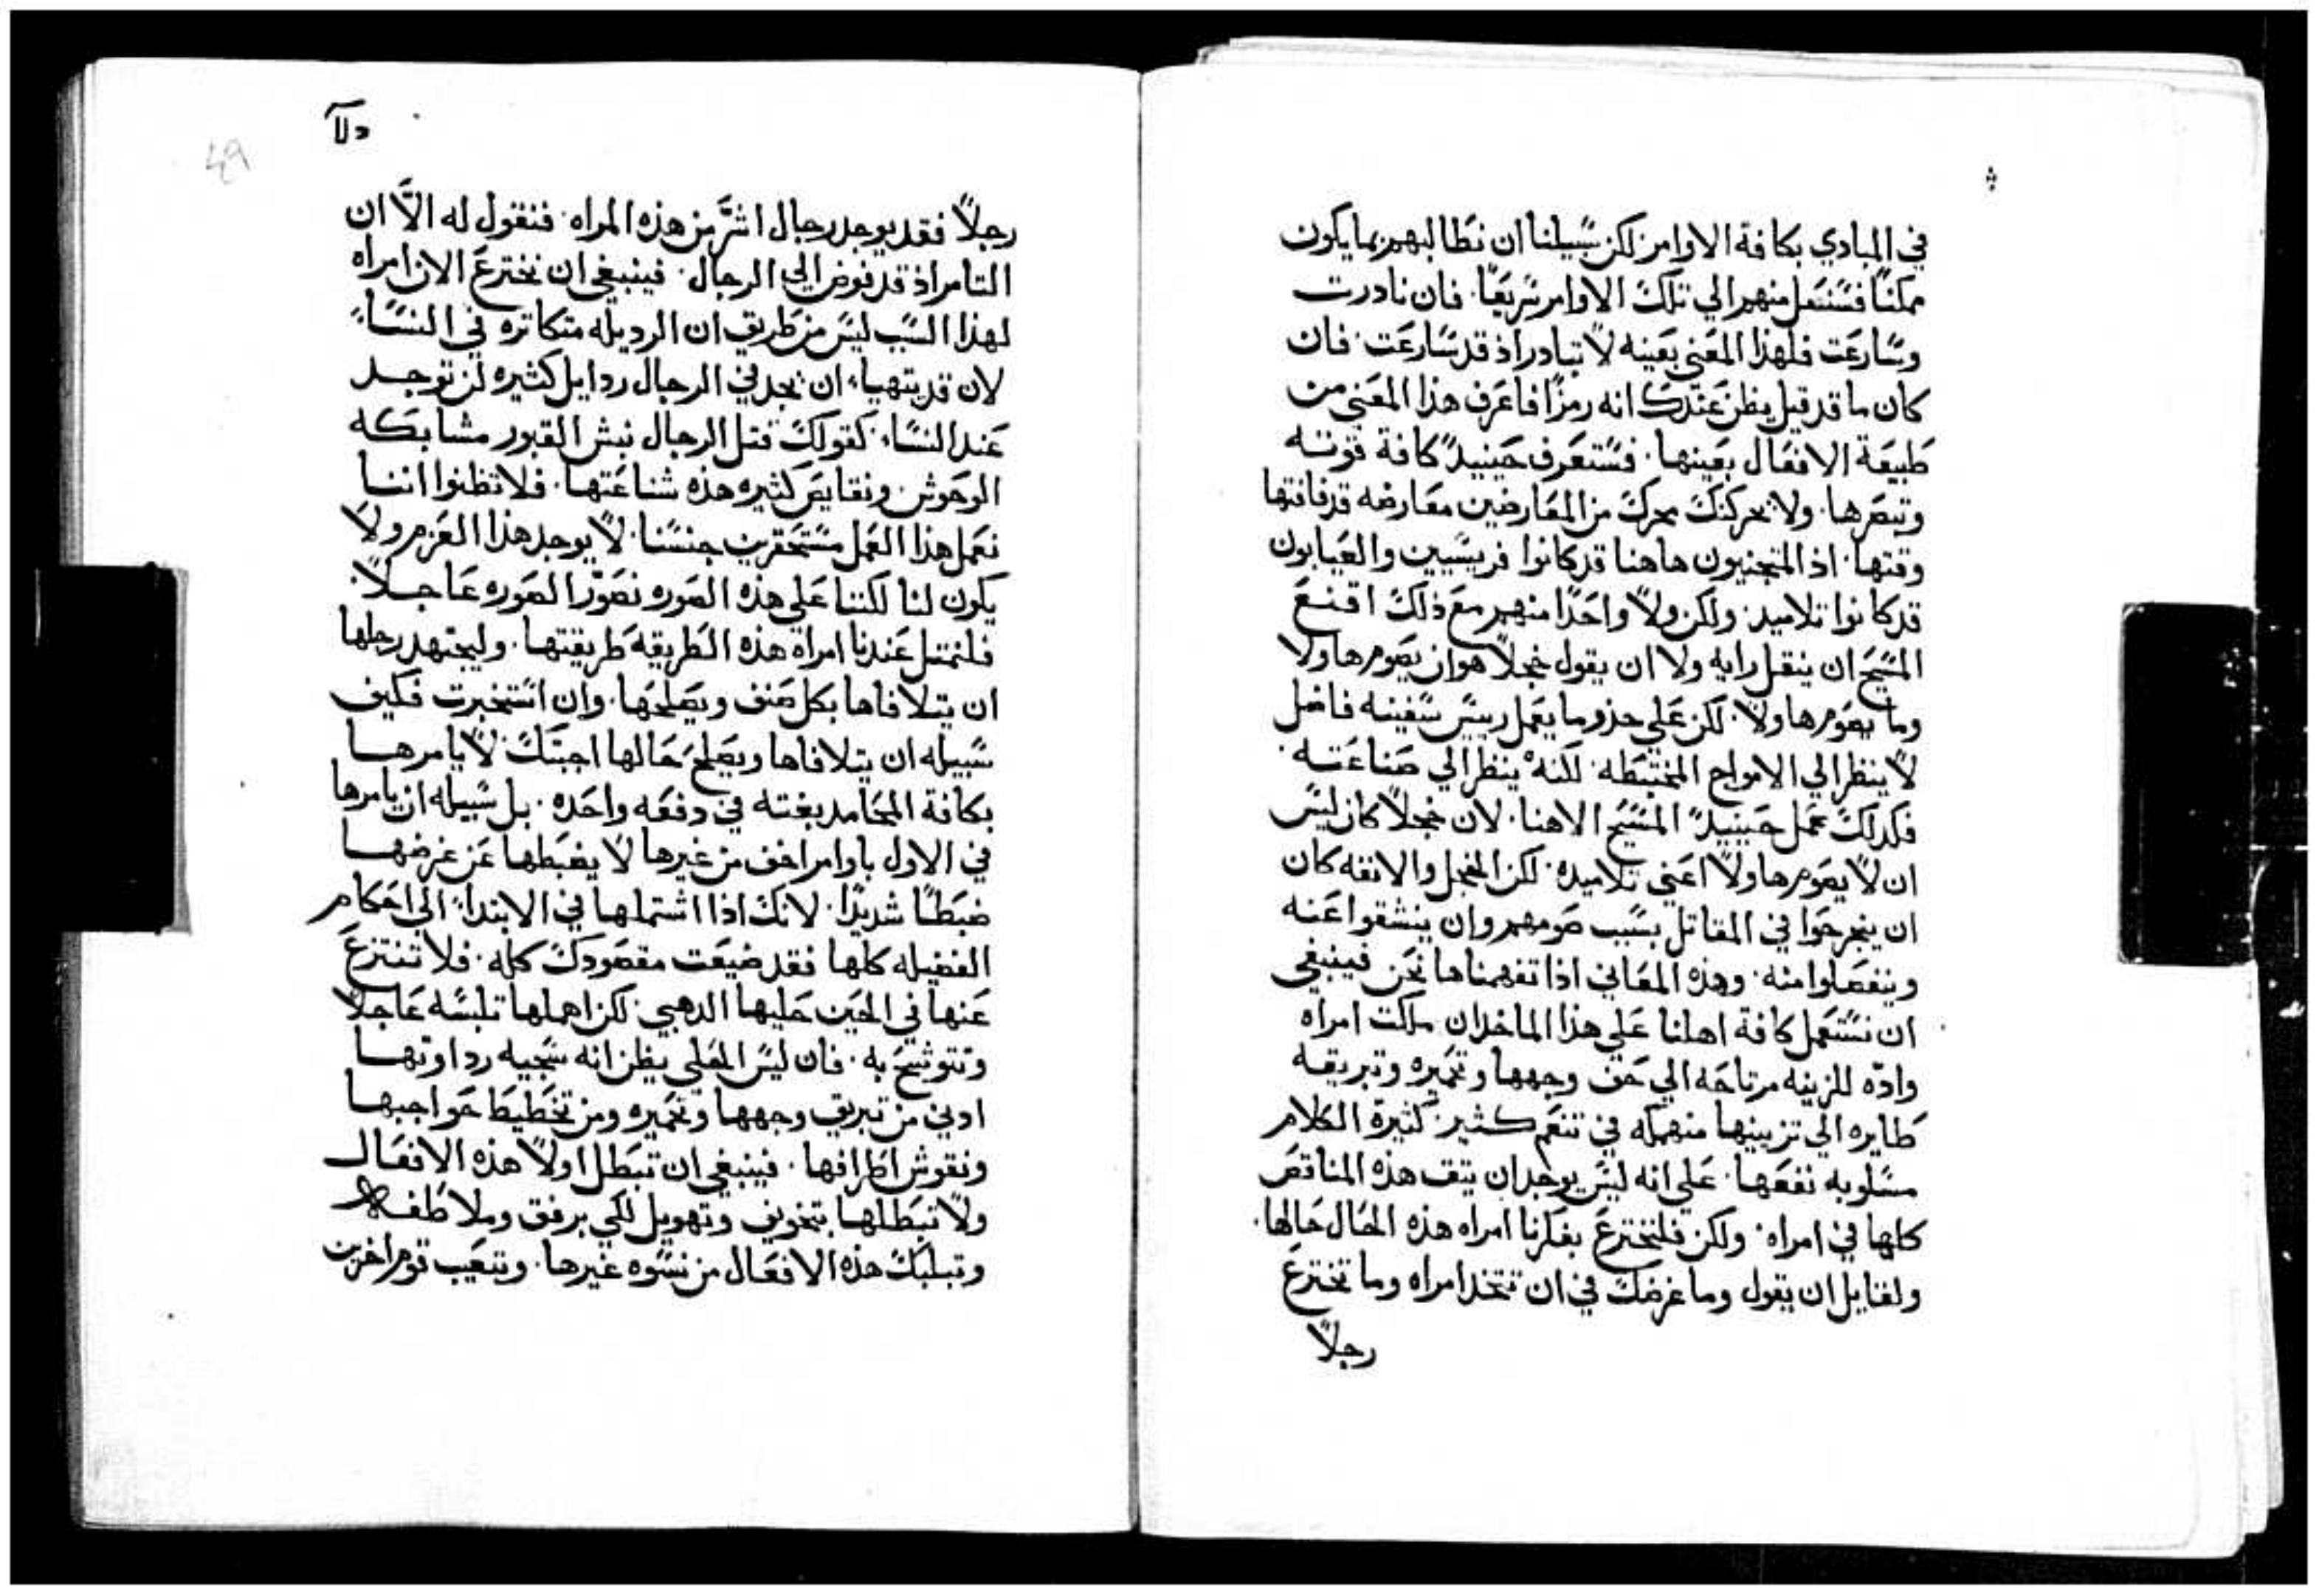 في المبادي بكافة الاوامر لكن سبيلنا ان نطالبهم بما يكون
ممكنًا فسننتقل منهم الي تلك الاوامر سريعًا. فان نادرت
وسارعت فلهذا المعني بعينه لا تبادر اذ قد سارعت. فان
كان ما قد قيل يظن عندك انه رمزًا فاعرف هذا المعني من
طبيعة الافعال بعينها. فستعرف حينيدٍ كافة قوته
وتبصرها. ولا يحركنك محرك من المعارضين معارضه قد فاتتها
وقتها. اذ المتجنيون هاهنا قد كانوا فريسيين والعيابون
قد كانوا تلاميد. ولكن ولا واحدًا منهم مع ذلك اقنع
المسيح ان ينقل رايه ولا ان يقول خجلًا هو ان يصوم هاولا
وما يصوم هاولا. لكن علي حذو ما يعمل رييس سفينه فاضل
لا ينظر الي الامواج المختبطه. لكنه ينظر الي صناعته.
فكدلك عمل حينيدٍ المسيح الاهنا. لان خجلًا كان ليس
ان لا يصوم هاولا اعني تلاميده. لكن الخجل والانفه كان
ان ينجرحوا في المقاتل بسبب صومهم وان ينشقوا عنه
وينفصلوا منه. وهذه المعاني اذا تفهمناها نحن فينبغي
ان نستعمل كافة اهلنا علي هذا الماخذ ان ملكت امراه
وادّه للزينه مرتاحه الي حف وجهها وتحميره وتبريقه
طايره الي تزيينها منهمكه في تنعم كثير. كثيرة الكلام
مسلوبه نفعها. علي انه ليس يوجد ان يتفق هذه المناقص
كلها في امراه. ولكن فلنخترع بفكرنا امراه هذه الحال حالها.
ولقايل ان يقول وما غرضك في ان تتخد امراه وما تخترع
رجلًا
49
رجلًا فقد يوجد رجال اشرّ من هذه المراه. فنقول له الّا ان
التامر اذ قد فوض الي الرجال. فينبغي ان نخترع الان امراه
لهذا السبب ليس من طريق ان الرديله متكاتره في النساء.
لان قد يتهياء ان نجد في الرجال ردايل كثيره لن توجد
عند النساء. كقولك قتل الرجال نبش القبور مشابكه
الوحوش. ونقايص كثيره هذه شناعتها. فلا تظنوا اننا
نعمل هذا العمل مستحقرين جنسنا. لا يوجد هذا العزم ولا
يكون لنا لكننا علي هذه الصوره نصوّر الصوره عاجلًا.
فلنمتل عندنا امراة هذه الطريقه طريقتها. وليجتهد رجلها
ان يتلافاها بكل صنف ويصلحها. وان استخبرت فكيف
سبيله ان يتلافاها ويصلح حالها اجبتك لا يامرها
بكافة المحامد بغته في دفعه واحده. بل سبيله ان يامرها
في الاول باوامر اخف من غيرها لا يضبطها عن غرضها
ضبطًا شديدًا. لانك اذا اشتملها في الابتداء الي احكام
الفضيله كلها فقد ضيعت مقصودك كله. فلا تنتزع
عنها في الحين حليها الدهبي. لكن اهملها تلبسه عاجلًا
وتتوشح به. فان ليس الحلي يظن انه سجيه رداوتها
ادني من تبريق وجهها وتحميره ومن تخطيط حواجبها
ونقوش اطرافها. فينبغي ان تبطل اولًا هذه الافعال
ولا تبطلها بتخويف وتهويل لكي برفق وملاطفه
وتبلبك هذه الافعال من نسوه غيرها. وتتعيب قوم اخرين